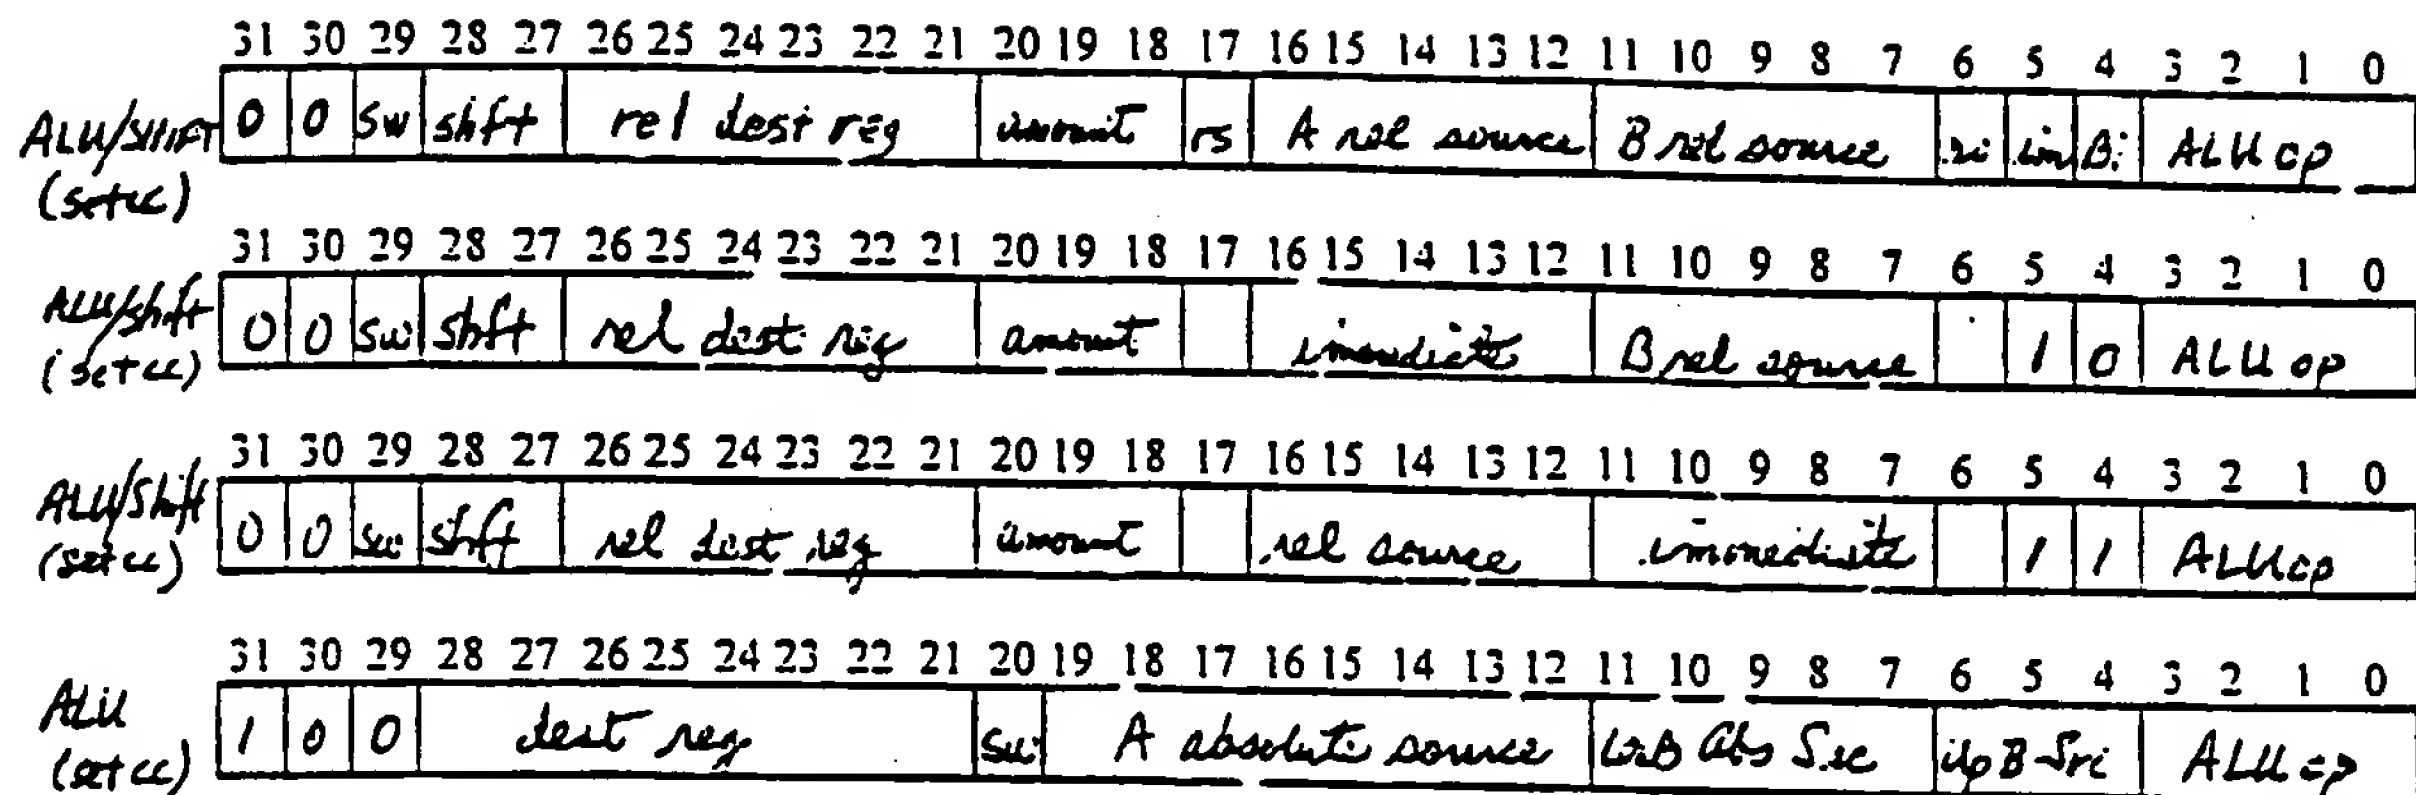 31 30 29 28 27 26 25 24 23 22 21 20 19 18 17 16 15 14 13 12 11 10 9 8 7 6 5 4 3 2 1 0
ALU/SHIFT 0 0 sw shft rel dest reg amount rs A rel source B rel source ri im Bi ALU op
(setcc)
31 30 29 28 27 26 25 24 23 22 21 20 19 18 17 16 15 14 13 12 11 10 9 8 7 6 5 4 3 2 1 0
ALU/shft 0 0 sw shft rel dest reg amount immediate B rel source 1 0 ALU op
(setcc)
31 30 29 28 27 26 25 24 23 22 21 20 19 18 17 16 15 14 13 12 11 10 9 8 7 6 5 4 3 2 1 0
ALU/Shift 0 0 sw shft rel dest reg amount rel source immediate 1 1 ALU op
(setcc)
31 30 29 28 27 26 25 24 23 22 21 20 19 18 17 16 15 14 13 12 11 10 9 8 7 6 5 4 3 2 1 0
ALU 1 0 0 dest reg sw A absolute source B Abs Src up B Src ALU op
(set cc)